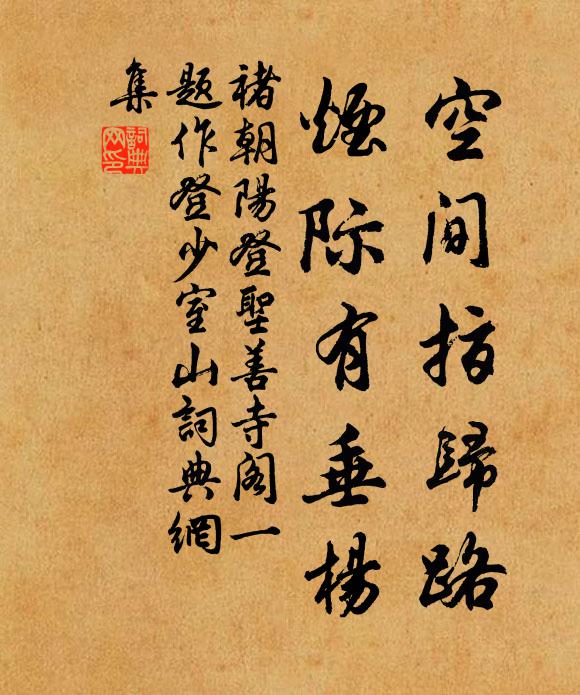 空間指歸路
煙際有垂楊
褚朝陽登聖善寺閣一
題作登少室山詞典網
集
詞典
网印